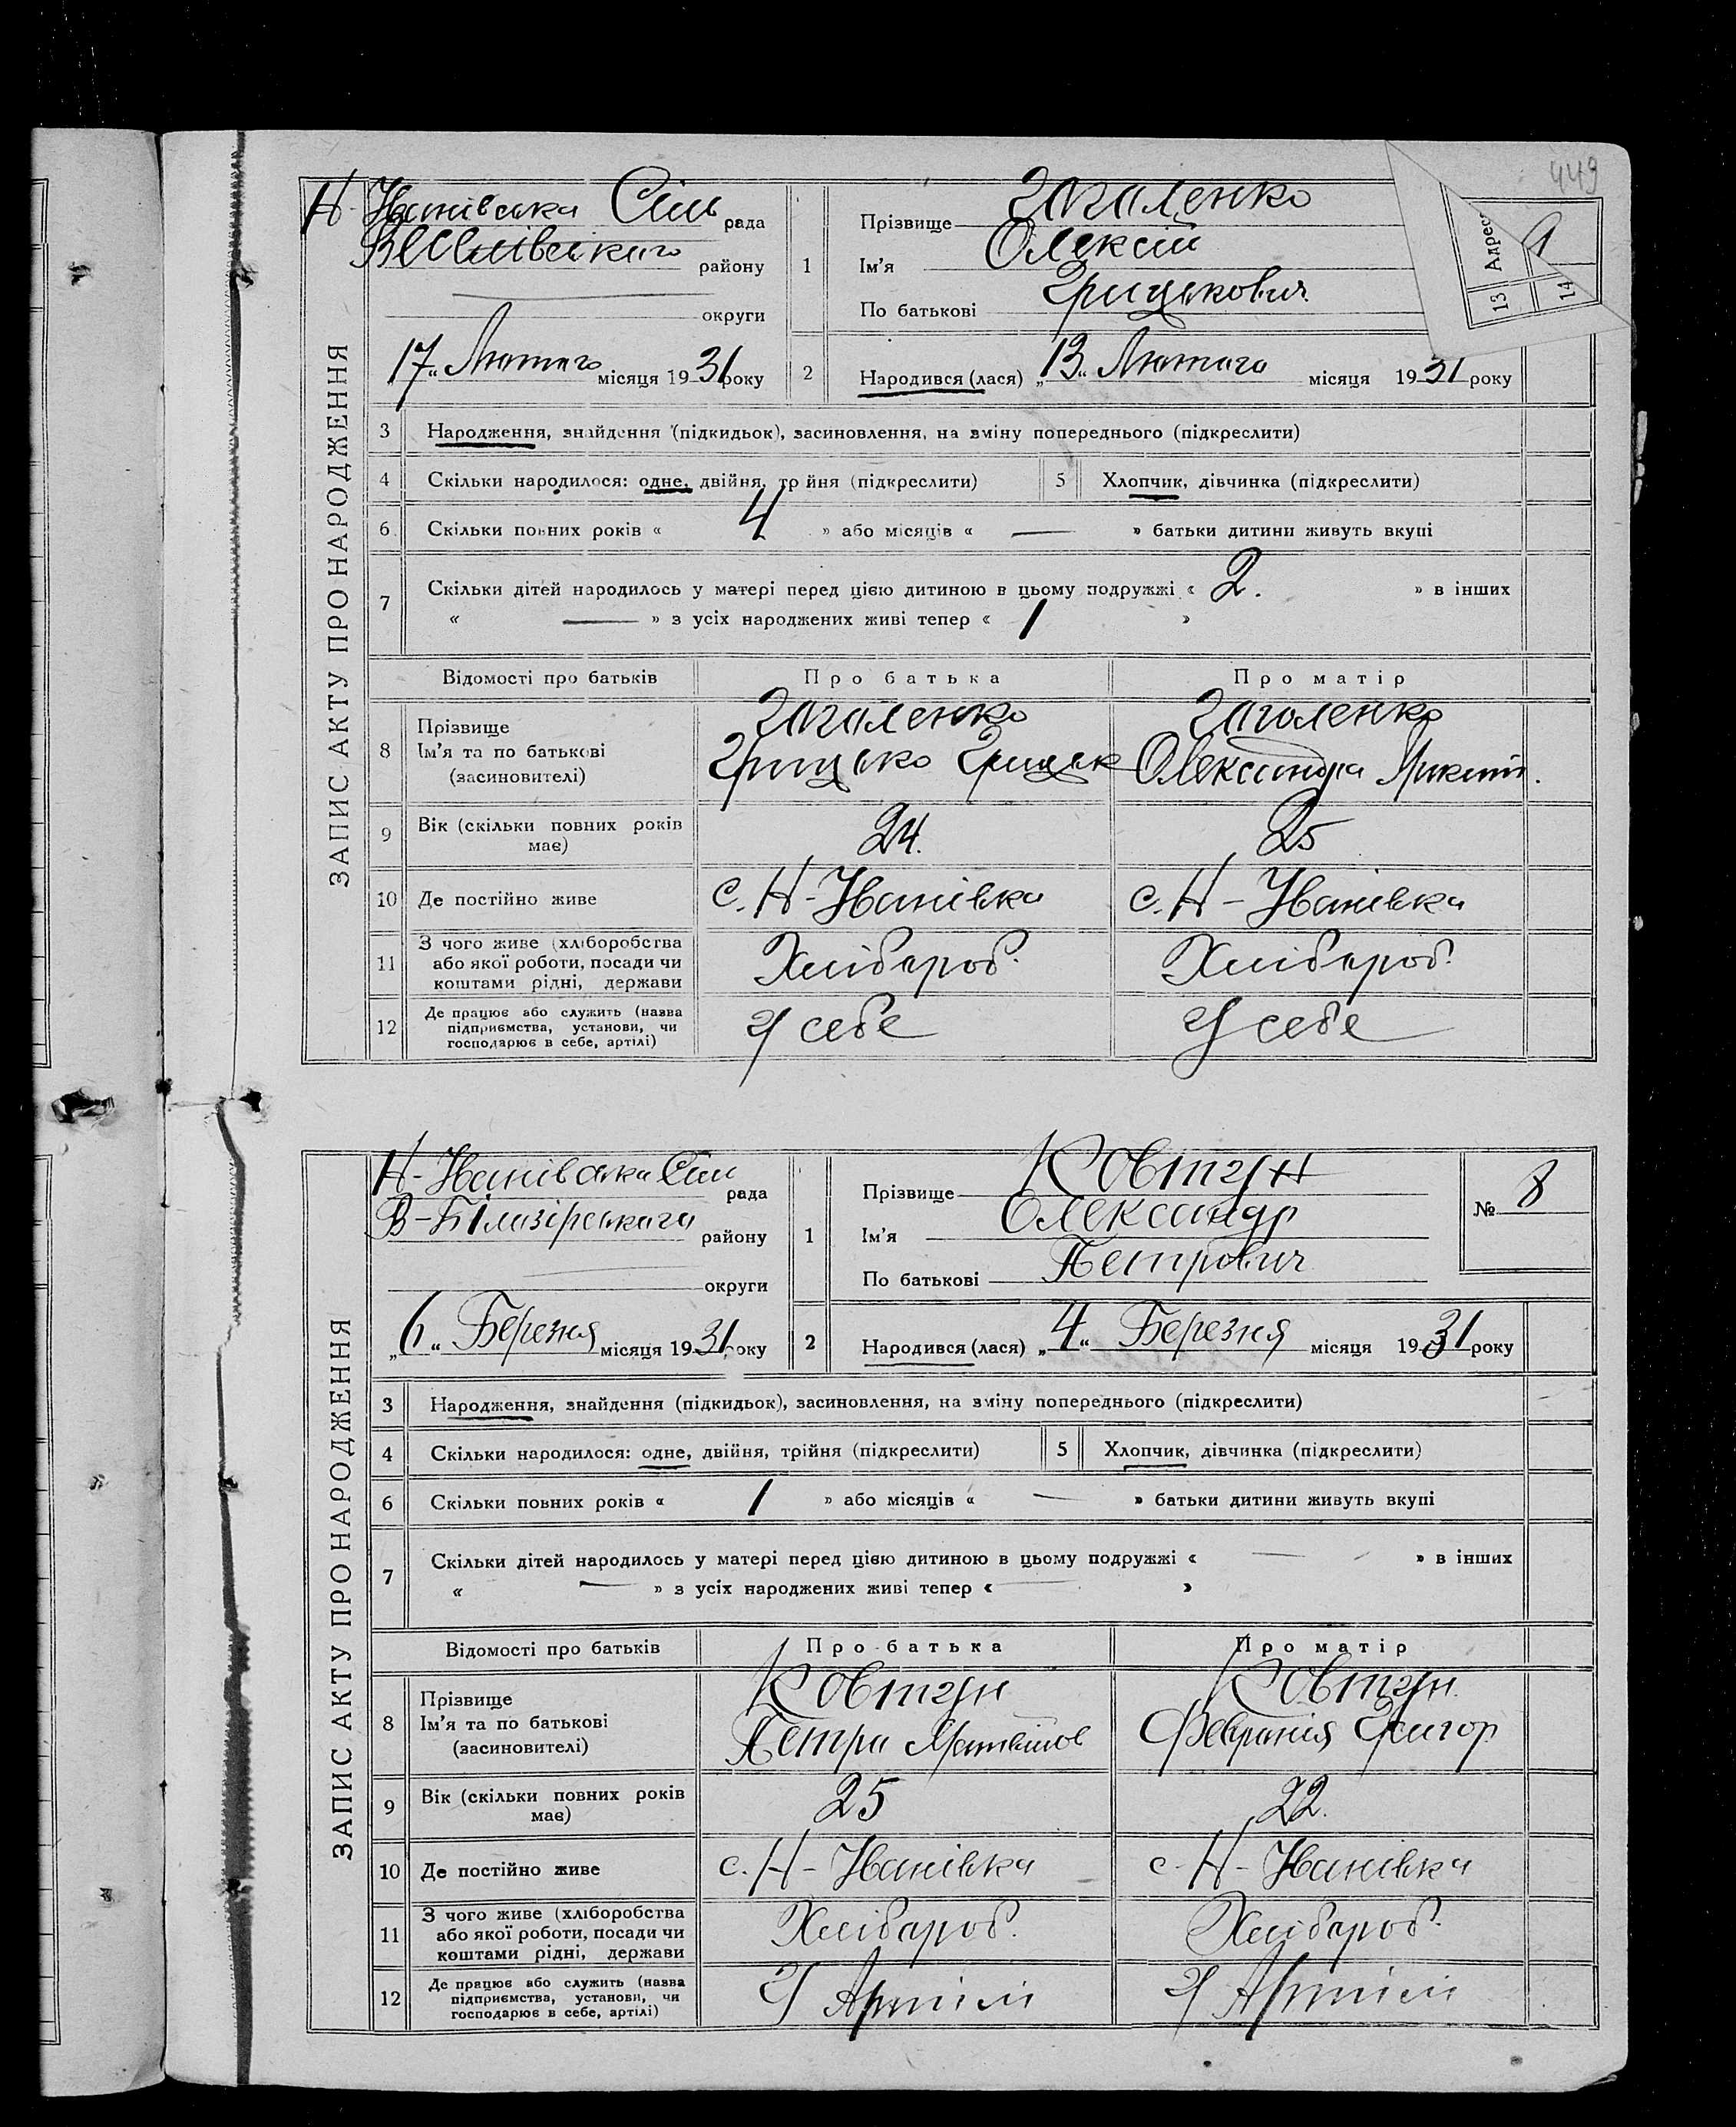 449
ЗАПИС АКТУ ПРО НАРОДЖЕННЯ
Н-Іванівська Сіль рада
району
округи
„17“ Лютого місяця 1931 року
1
Прізвище Заголенко
Ім'я Олексій
По батькові Грицькович
13 Адрес
14
2 Народився (лася) „13“ Лютого місяця 1931 року
3 Народження, знайдення (підкидьок), засиновлення, на зміну попереднього (підкреслити)
4 Скільки народилося: одне, двійня, тр йня (підкреслити) 5 Хлопчик, дівчинка (підкреслити)
6 Скільки повних років « 4 » або місяців « — » батьки дитини живуть вкупі
7 Скільки дітей народилось у матері перед цією дитиною в цьому подружжі « 2. » в інших
« — » з усіх народжених живі тепер « 1 »
Відомості про батьків Про батька Про матір
8 Прізвище Заголенко Заголенко
Ім'я та по батькові Грицько Грицьк Олександра Микит.
(засиновителі)
9 Вік (скільки повних років має) 24. 25
10 Де постійно живе с. Н-Іванівка с. Н-Іванівка
11 З чого живе (хліборобства або якої роботи, посади чи коштами рідні, держави Хлібороб. Хлібороб.
12 Де працює або служить (назва підприємства, установи, чи господарює в себе, артілі) У себе У себе
ЗАПИС АКТУ ПРО НАРОДЖЕННЯ
Н-Іванівська Сіл рада
В-Білазірського району
округи
„6“ Березня місяця 1931 року
1
Прізвище Ковтун
Ім'я Олександр
По батькові Петрович
№ 8
2 Народився (лася) „4“ Березня місяця 1931 року
3 Народження, знайдення (підкидьок), засиновлення, на зміну попереднього (підкреслити)
4 Скільки народилося: одне, двійня, трійня (підкреслити) 5 Хлопчик, дівчинка (підкреслити)
6 Скільки повних років « 1 » або місяців « — » батьки дитини живуть вкупі
7 Скільки дітей народилось у матері перед цією дитиною в цьому подружжі « — » в інших
« — » з усіх народжених живі тепер « — »
Відомості про батьків Про батька Про матір
8 Прізвище Ковтун Ковтун.
Ім'я та по батькові Петро Григор
(засиновителі)
9 Вік (скільки повних років має) 25 22.
10 Де постійно живе с. Н-Іванівка с. Н-Іванівка
11 З чого живе (хліборобства або якої роботи, посади чи коштами рідні, держави Хлібороб. Хлібороб.
12 Де працює або служить (назва підприємства, установи, чи господарює в себе, артілі) У Артілі У Артілі